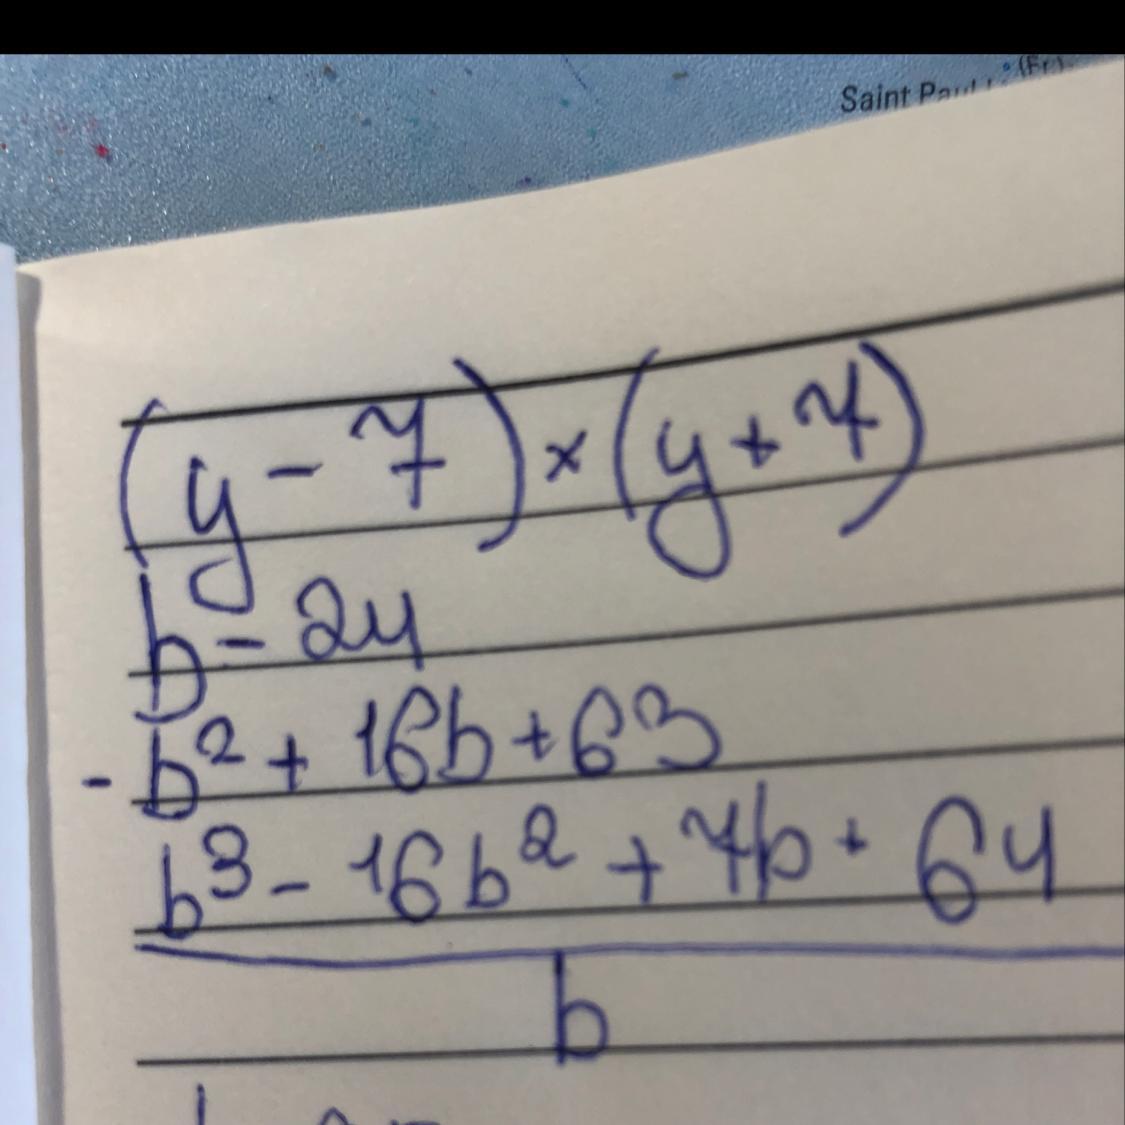 Saint Paul
(Fr)
(y - 7) × (y + 7)
b - 24
- b² + 16b + 63
b³ - 16b² + 7b + 64
b